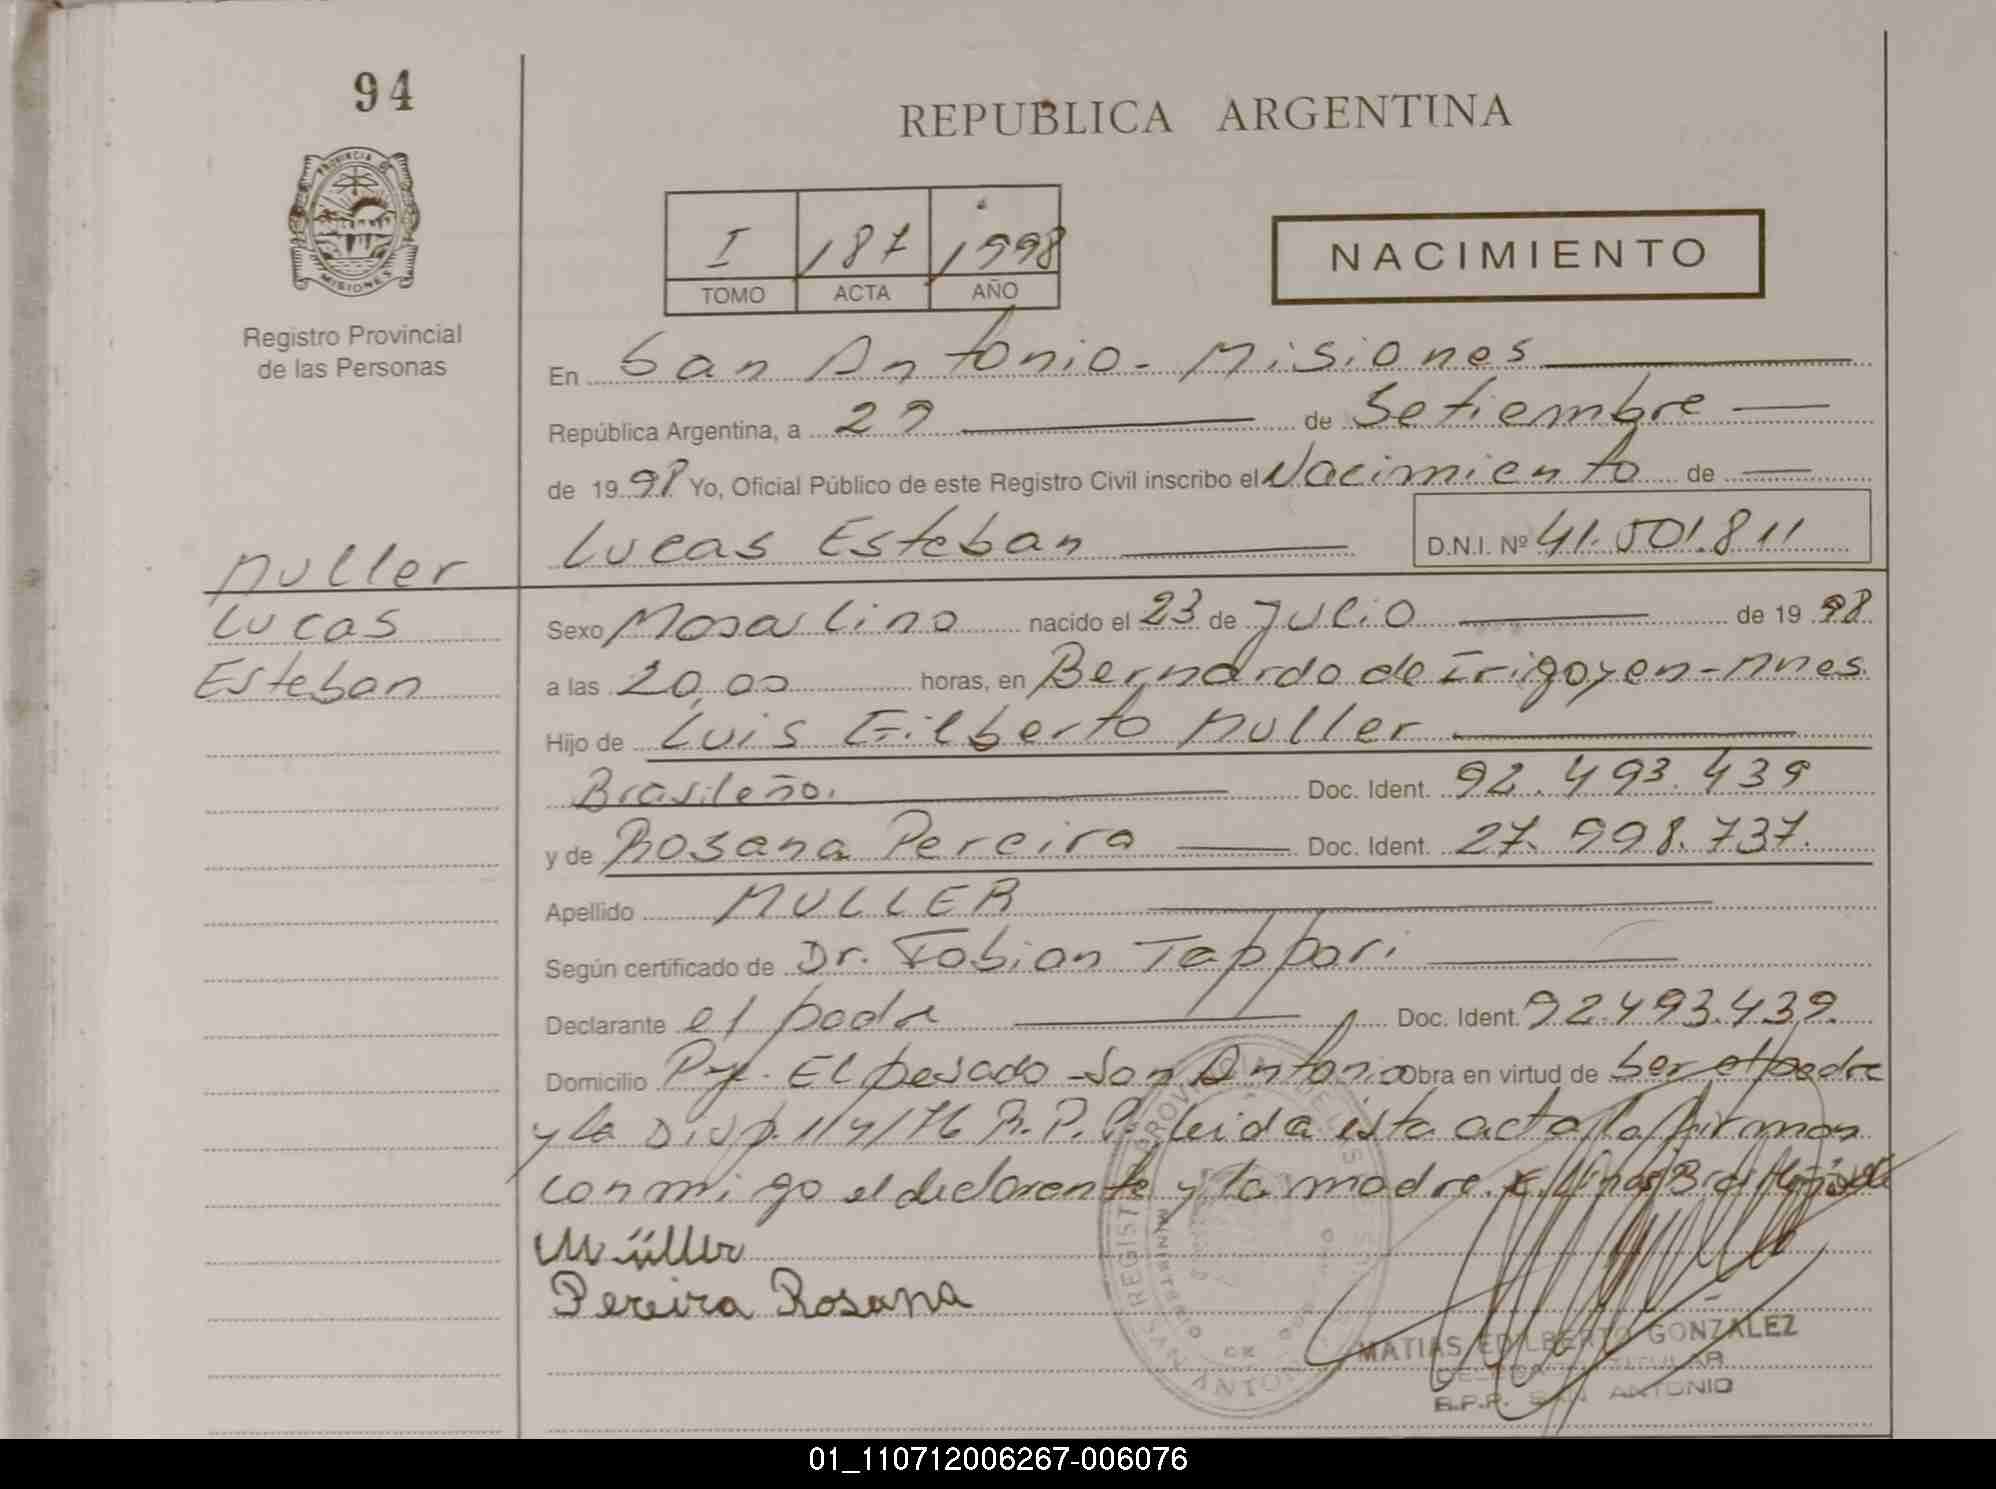 94
REPUBLICA ARGENTINA
PROVINCIA DE
MISIONES
I 187 1998
TOMO ACTA AÑO
NACIMIENTO
Registro Provincial
de las Personas
En San Antonio - Misiones
República Argentina, a 29 de Setiembre
de 1998 Yo, Oficial Público de este Registro Civil inscribo el Nacimiento de
Lucas Esteban D.N.I. Nº 41.501.811
Muller
Lucas
Esteban
Sexo Masculino nacido el 23 de Julio de 1998
a las 20,00 horas, en Bernardo de Irigoyen - Mnes.
Hijo de Luis Gilberto Muller
Brasileño. Doc. Ident. 92.493.439
y de Rosana Pereira Doc. Ident. 27.998.737.
Apellido MULLER
Según certificado de Dr. Fabian Tappari
Declarante el padre Doc. Ident. 92.493.439.
Domicilio Pje. El pesado - San Antonio Obra en virtud de ser el padre
y la Disp. 114/76 R.P.P. Leida esta acta la firman
conmigo el declarante y la madre.
Müller
Pereira Rosana
MATIAS EDILBERTO GONZALEZ
TITULAR
R.P.P. SAN ANTONIO
01_110712006267-006076